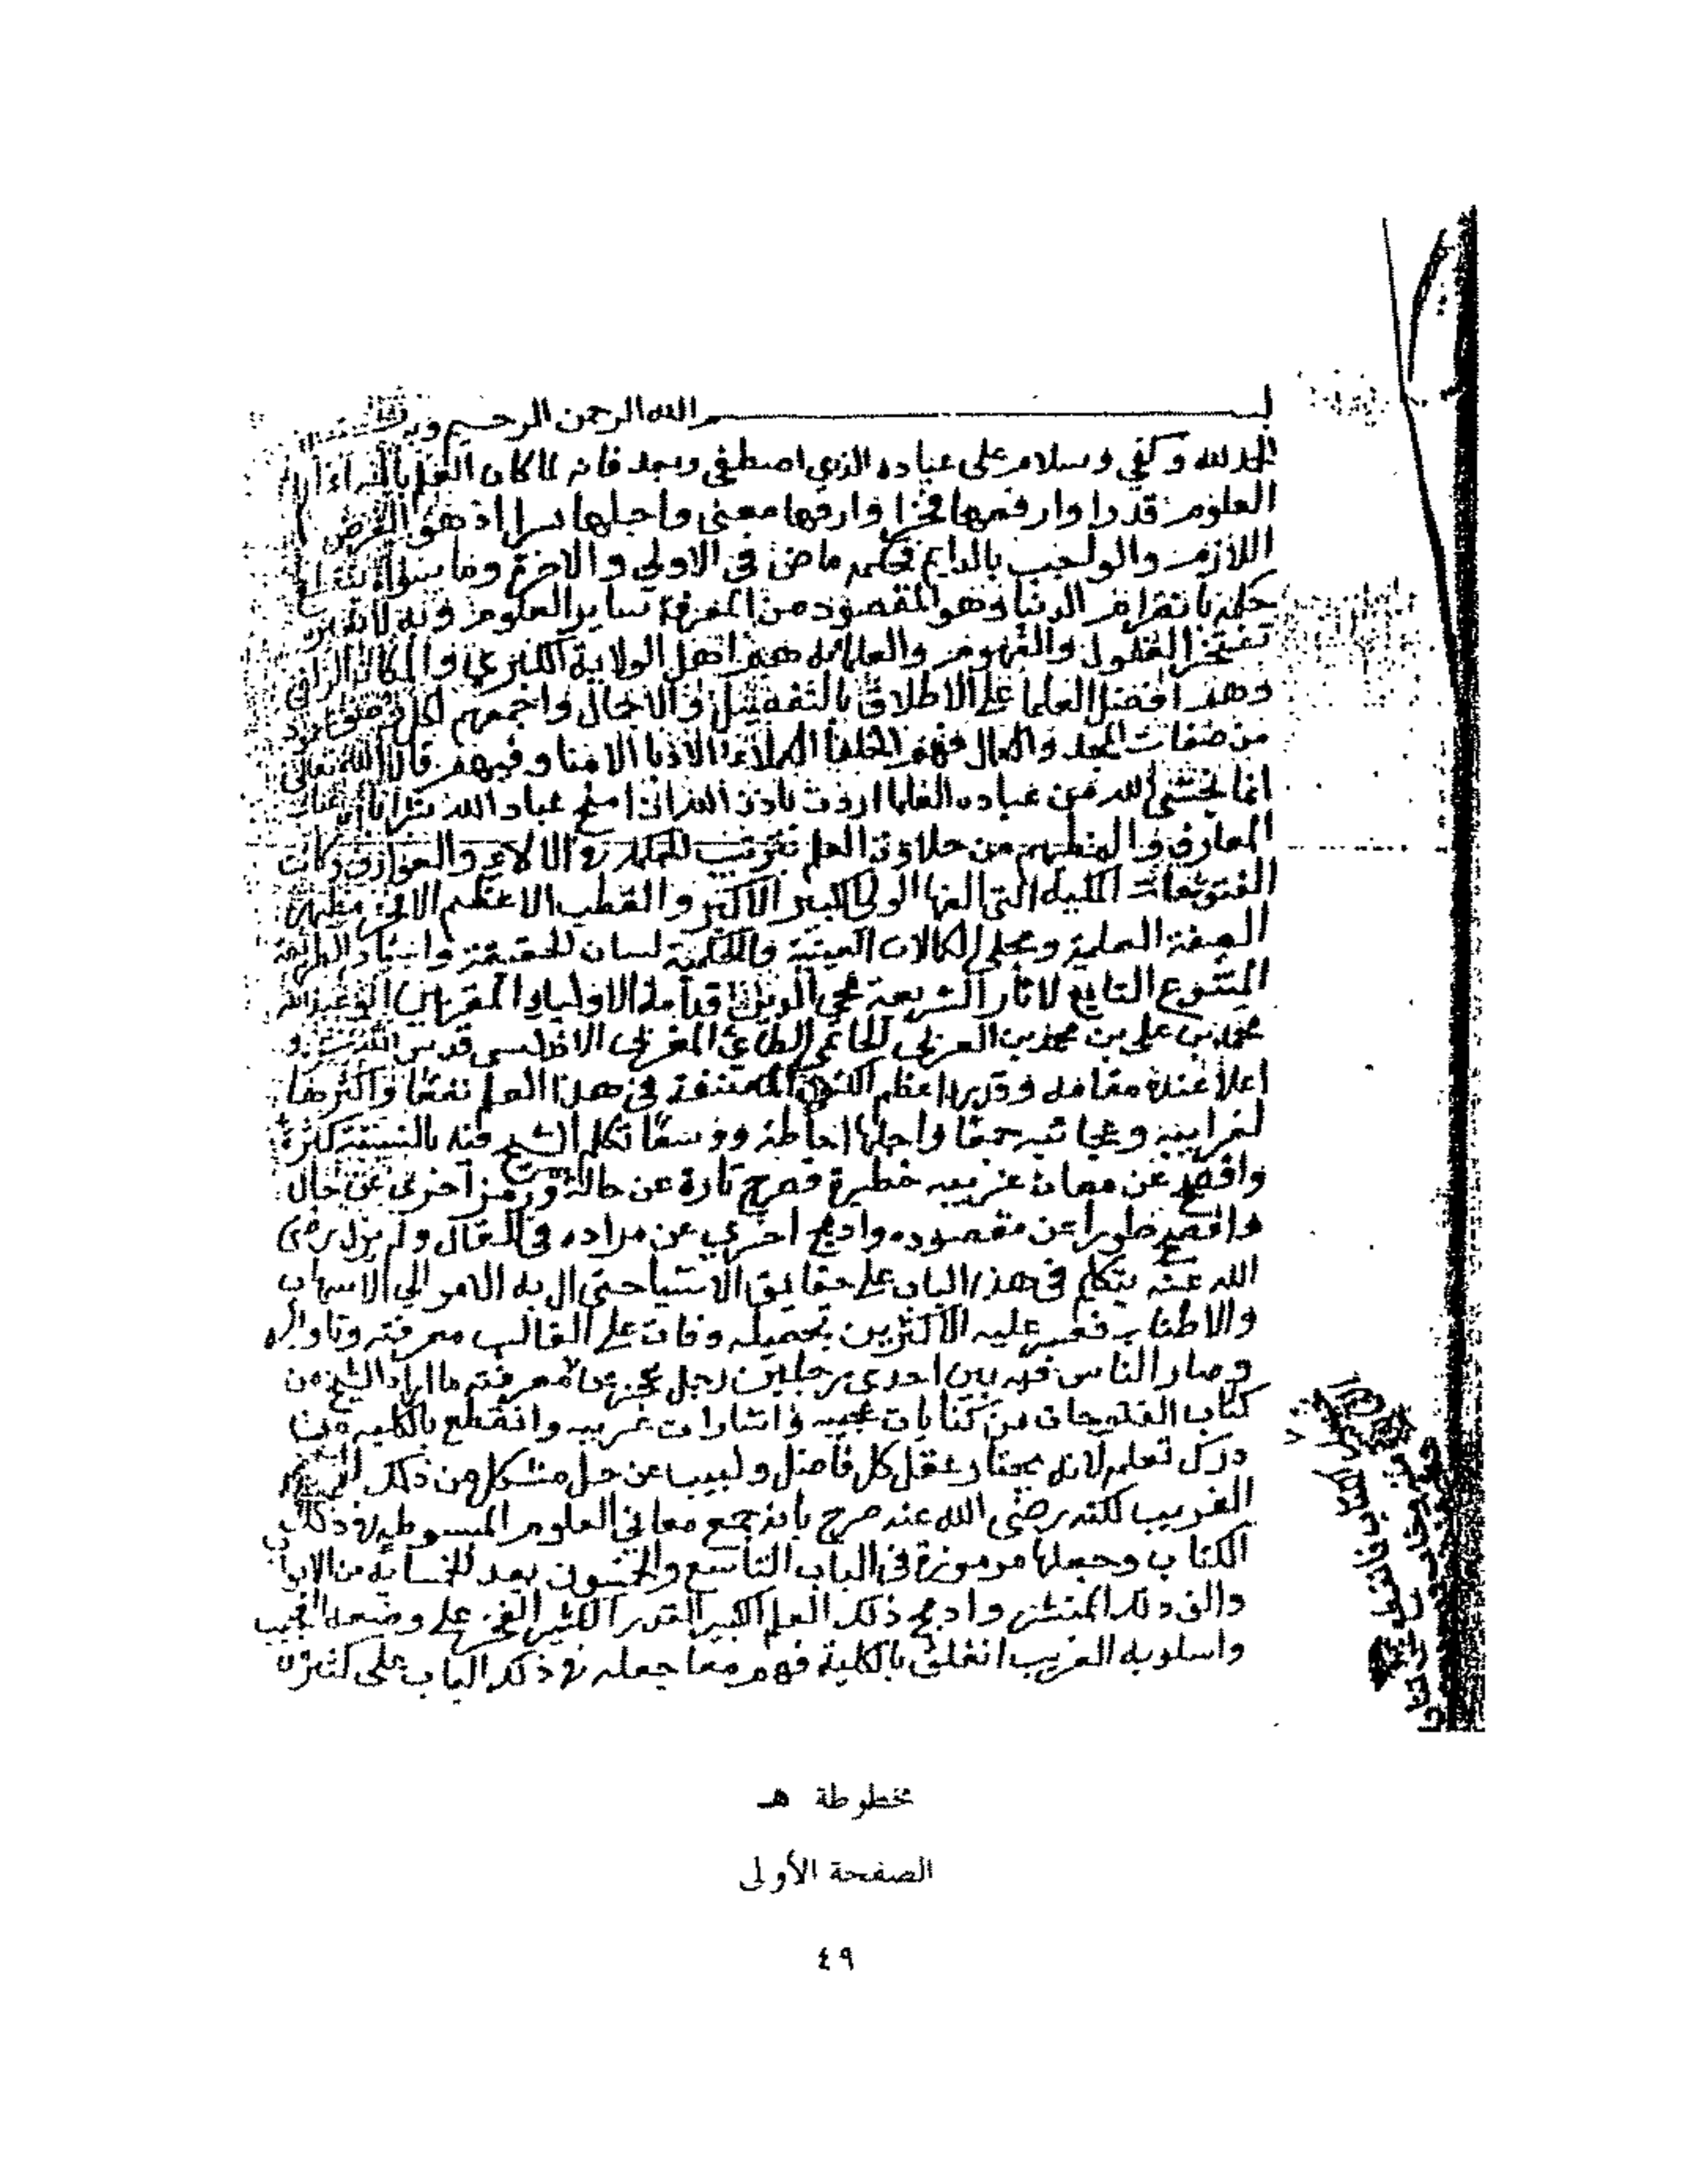 بسم الله الرحمن الرحيم وبه
الحمد لله وكفي وسلام على عباده الذي اصطفى وبعد فانه لما كان العلم بالله
العلوم قدرا وارفعها فخرا وادقها معنى واجلها سرا اذ هو الغرض
اللازم والواجب بالدايم فحكمه ماض في الاولي والاخرة وما سواه
حكمه بانصرام الدنيا وهو المقصود من المعرفة بساير العلوم وبه لا بغيره
تفتخر العقول والفهوم والعلما به هم اهل الولاية الكبرى والمكان
وهم افضل العلما على الاطلاق بالتفصيل والاجمال واجمعهم لكل
من صفات المجد والكمال فهم الخلفا الكملا الادبا الامنا وفيهم قال الله تعالى
انما يخشى الله من عباده العلما اردت باذن الله ان امنح عباد الله
المعارف و من حلاوة العلم والعوارف وكانت
الفتوحات المكية التي الفها الولي الكبير الاكبر والقطب الاعظم الافخر مظهر
الصفة العلمية ومجلى الكمالات العينية والحكمية لسان الحقيقة واستاد الطريقة
المتبوع التابع لاثار الشريعة محي الدين قدامة الاولياء المقربين ابو عبد الله
محمد بن علي بن محمد بن العربي الحاتمي الطائي المغربي الاندلسي قدس الله سره و
اعلا عنده مقامه وقدره اعظم الكتب المصنفة في هذا العلم نفعا واكثرها
لغرايبه وعجائبه جمعا واجلها احاطة ووسعا تكلم الشيخ فيه بالسنة كثيرة
وافصح عن معان غريبه خطيرة فصرح تارة عن حالة ورمز اخرى عن حال
وافصح طورا عن مقصوده وادمج اخرى عن مراده في المقال ولم يزل رضى
الله عنه يتكلم في هذا الباب على حقايق الاشيا حتى ال به الامر الي الاسهاب
والاطناب فعسر عليه الاكثرين تحصيله وفات على الغالب معرفته وتاويله
وصار الناس فيه بين احدى رجلين رجل عجز عن معرفته ما اراد الشيخ من
كتاب الفتوحات من كنايات عجيبه واشارات غريبه وانقطع بالكليه من
درك تعلم لانه محتار عقل كل فاضل ولبيب عن حل مشكل من ذلك
الغريب لكنه رضى الله عنه صرح بانه جمع معاني العلوم المبسوطه في ذلك
الكتاب وجعلها مرموزة في الباب التاسع والخمسون بعد الخمسمائة من الابواب
والف ذلك المنشر وادمج ذلك العلم الكبير القدر الكثير الفخر على وضعه العجيب
واسلوبه الغريب انغلق بالكلية فهم ما جعله في ذلك الباب على كثرة
مخطوطة هـ
الصفحة الأولى
٤٩